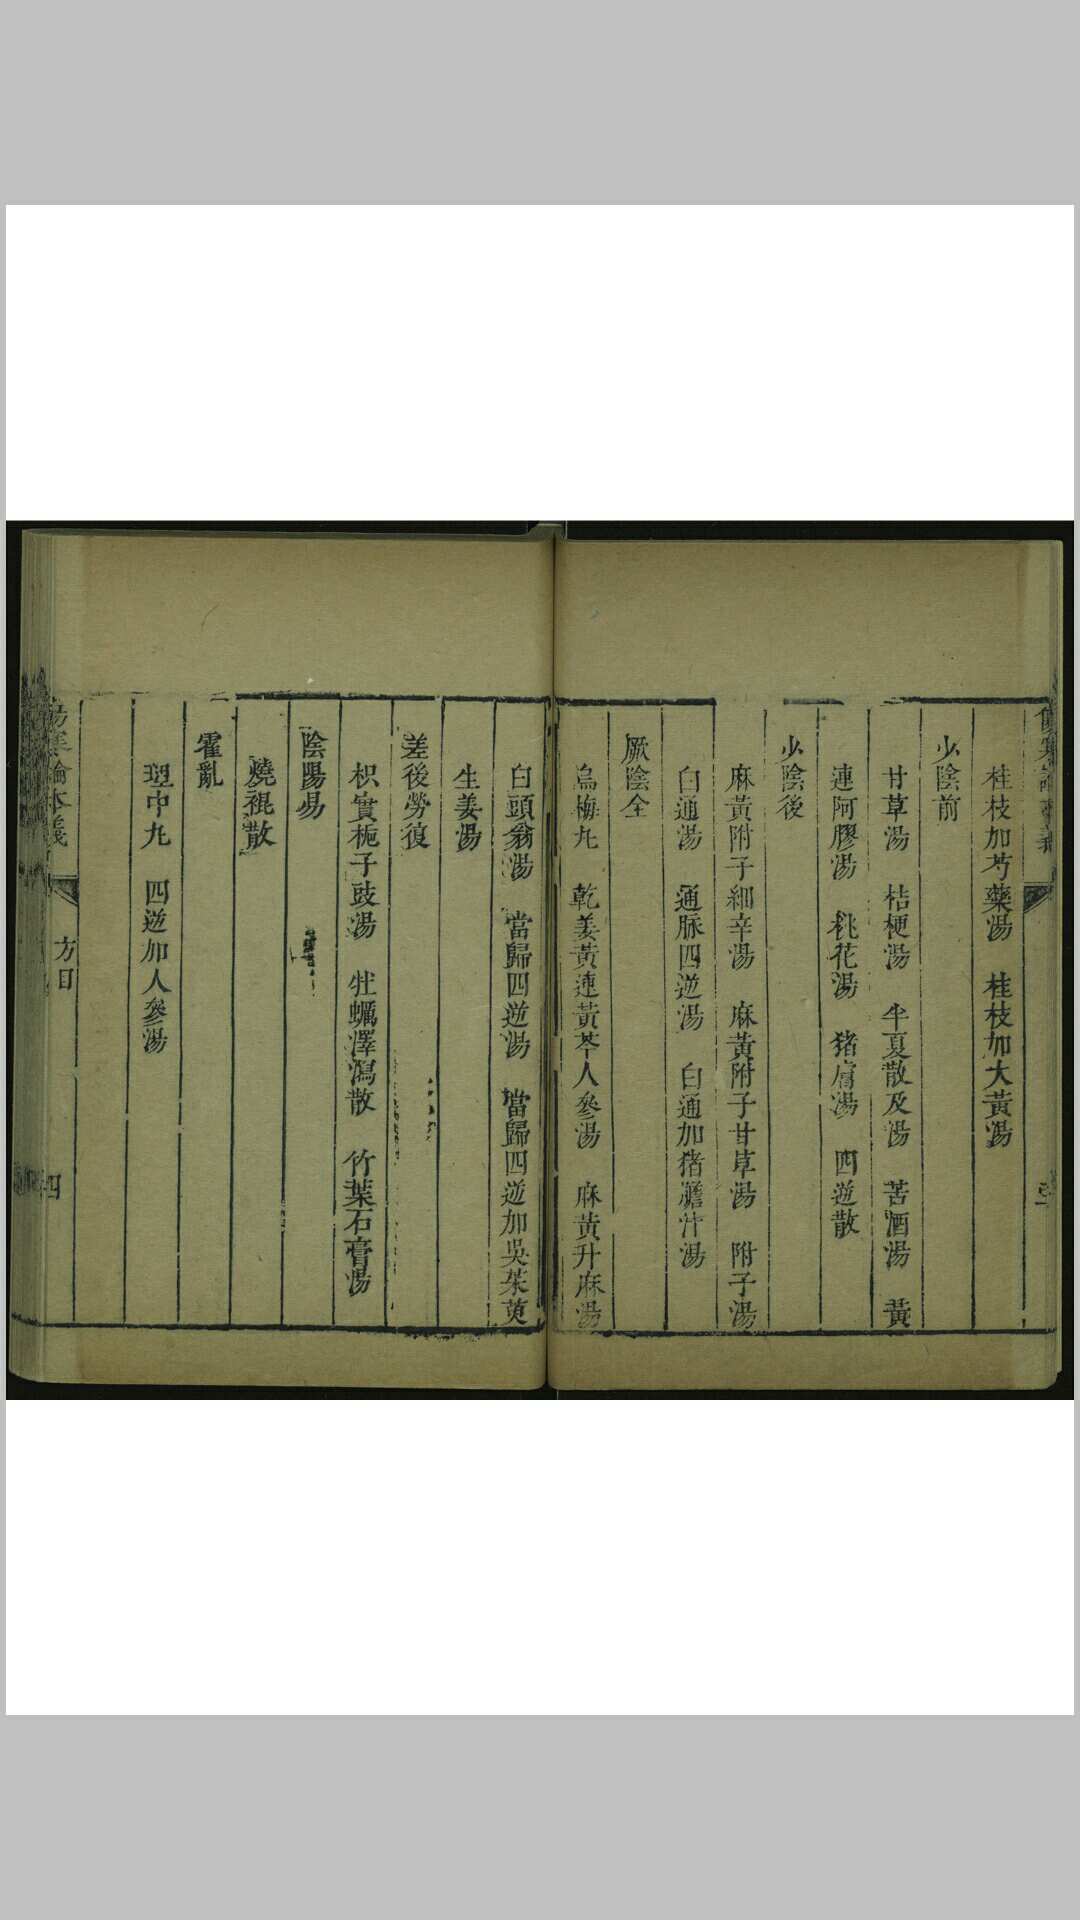 桂枝加芍藥湯　桂枝加大黃湯
少陰前
甘草湯　桔梗湯　半夏散及湯　苦酒湯　黃
連阿膠湯　桃花湯　猪膚湯　四逆散
少陰後
麻黃附子細辛湯　麻黃附子甘草湯　附子湯
白通湯　通脉四逆湯　白通加猪膽汁湯
厥陰全
烏梅丸　乾姜黃連黃芩人參湯　麻黃升麻湯
白頭翁湯　當歸四逆湯　當歸四逆加吳茱萸
生姜湯
差後勞復
枳實梔子豉湯　牡蠣澤瀉散　竹葉石膏湯
陰陽易
燒裩散
霍亂
理中丸　四逆加人參湯
傷寒論本義
方目
四